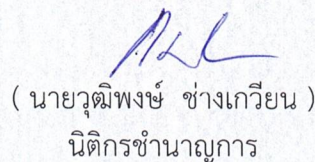 ( นายวุฒิพงษ์ ช่างเกวียน )
นิติกรชำนาญการ